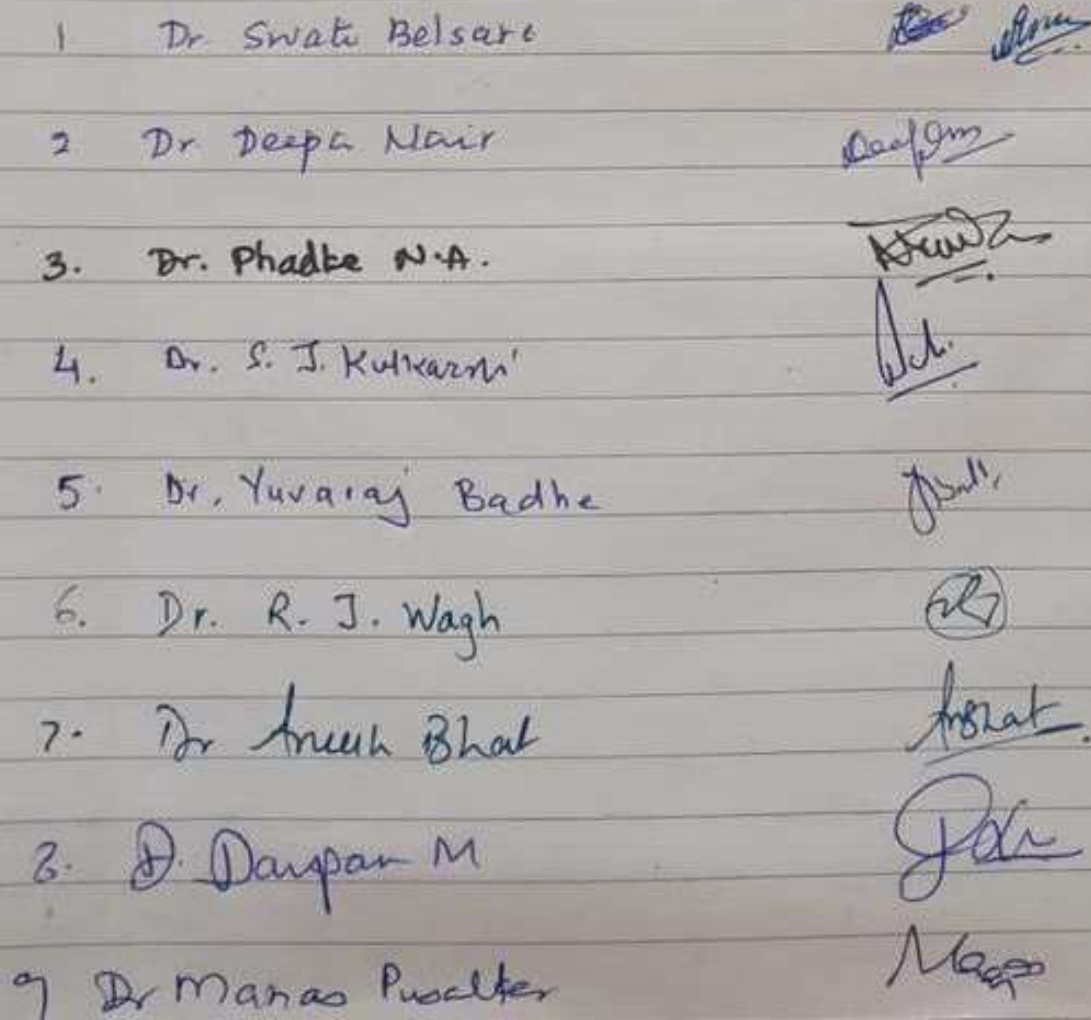 1 Dr Swati Belsare
2 Dr Deepa Nair
3. Dr. Phadke N.A.
4. Dr. S. J. Kulkarni
5. Dr. Yuvaraj Badhe
6. Dr. R. J. Wagh
7. Dr Aneesh Bhat
8. D. Darpan M
9 Dr Manas Pusalker